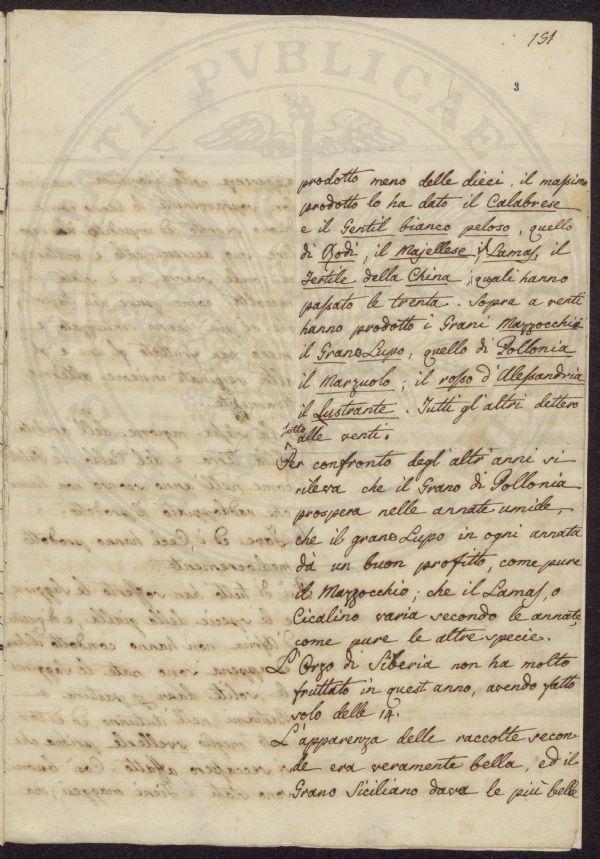 151
3
prodotto meno delle dieci, il massimo
prodotto lo ha dato il Calabrese
e il Gentil bianco peloso, quello
di Rodi, il Majellese, il Lamas, il
Fertile della China, i quali hanno
passato le trenta. Sopra a venti
hanno prodotto i Grani Mazzocchio
il Grano Lupo, quello di Pollonia
il Marzuolo; il rosso d'Alessandria
il Lustrante. Tutti gl'altri dettero
sotto
alle venti.
Per confronto degl'altr'anni si
rileva che il Grano di Pollonia
prospera nelle annate umide,
che il grano Lupo in ogni annata
dà un buon profitto, come pure
il Mazzocchio; che il Lamas, o
Cicalino varia secondo le annate,
come pure le altre specie.
L'Orzo di Siberia non ha molto
fruttato in quest'anno, avendo fatto
solo delle 14.
L'apparenza delle raccolte secon-
de era veramente bella, ed il
Grano Siciliano dava le più belle
PVBLICAE